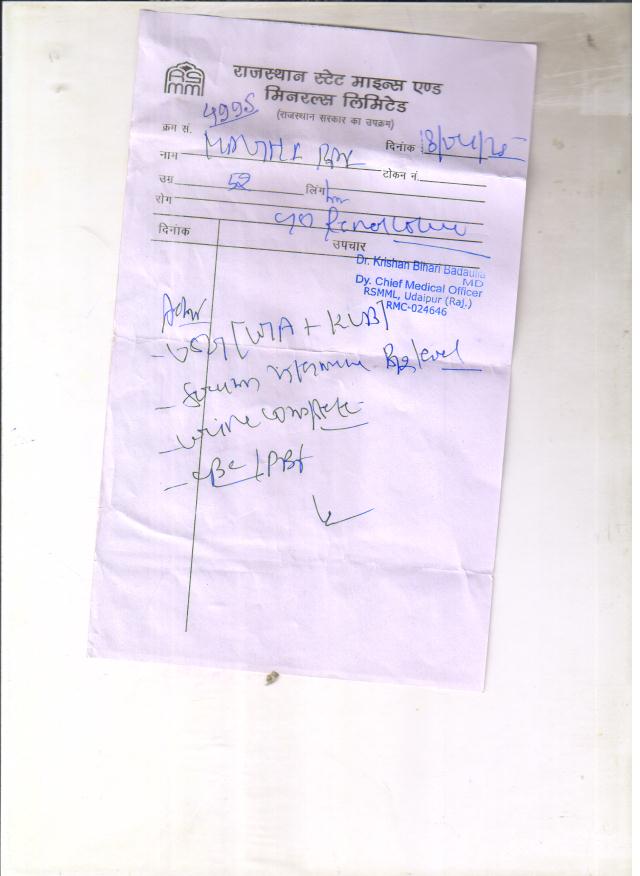 RSMM
राजस्थान स्टेट माइन्स एण्ड
मिनरल्स लिमिटेड
(राजस्थान सरकार का उपक्रम)
क्रम सं.
दिनांक : 18/04/25
नाम
टोकन नं.
उम्र 52 लिंग
रोग
c/o Renal colic
दिनांक उपचार
Dr. Krishan Bihari Badaulia
MD
Dy. Chief Medical Officer
RSMML, Udaipur (Raj.)
RMC-024646
Adv
- USG [W/A + KUB]
- Serum vitamine B12 level
- urine complete
- CBC / PBF